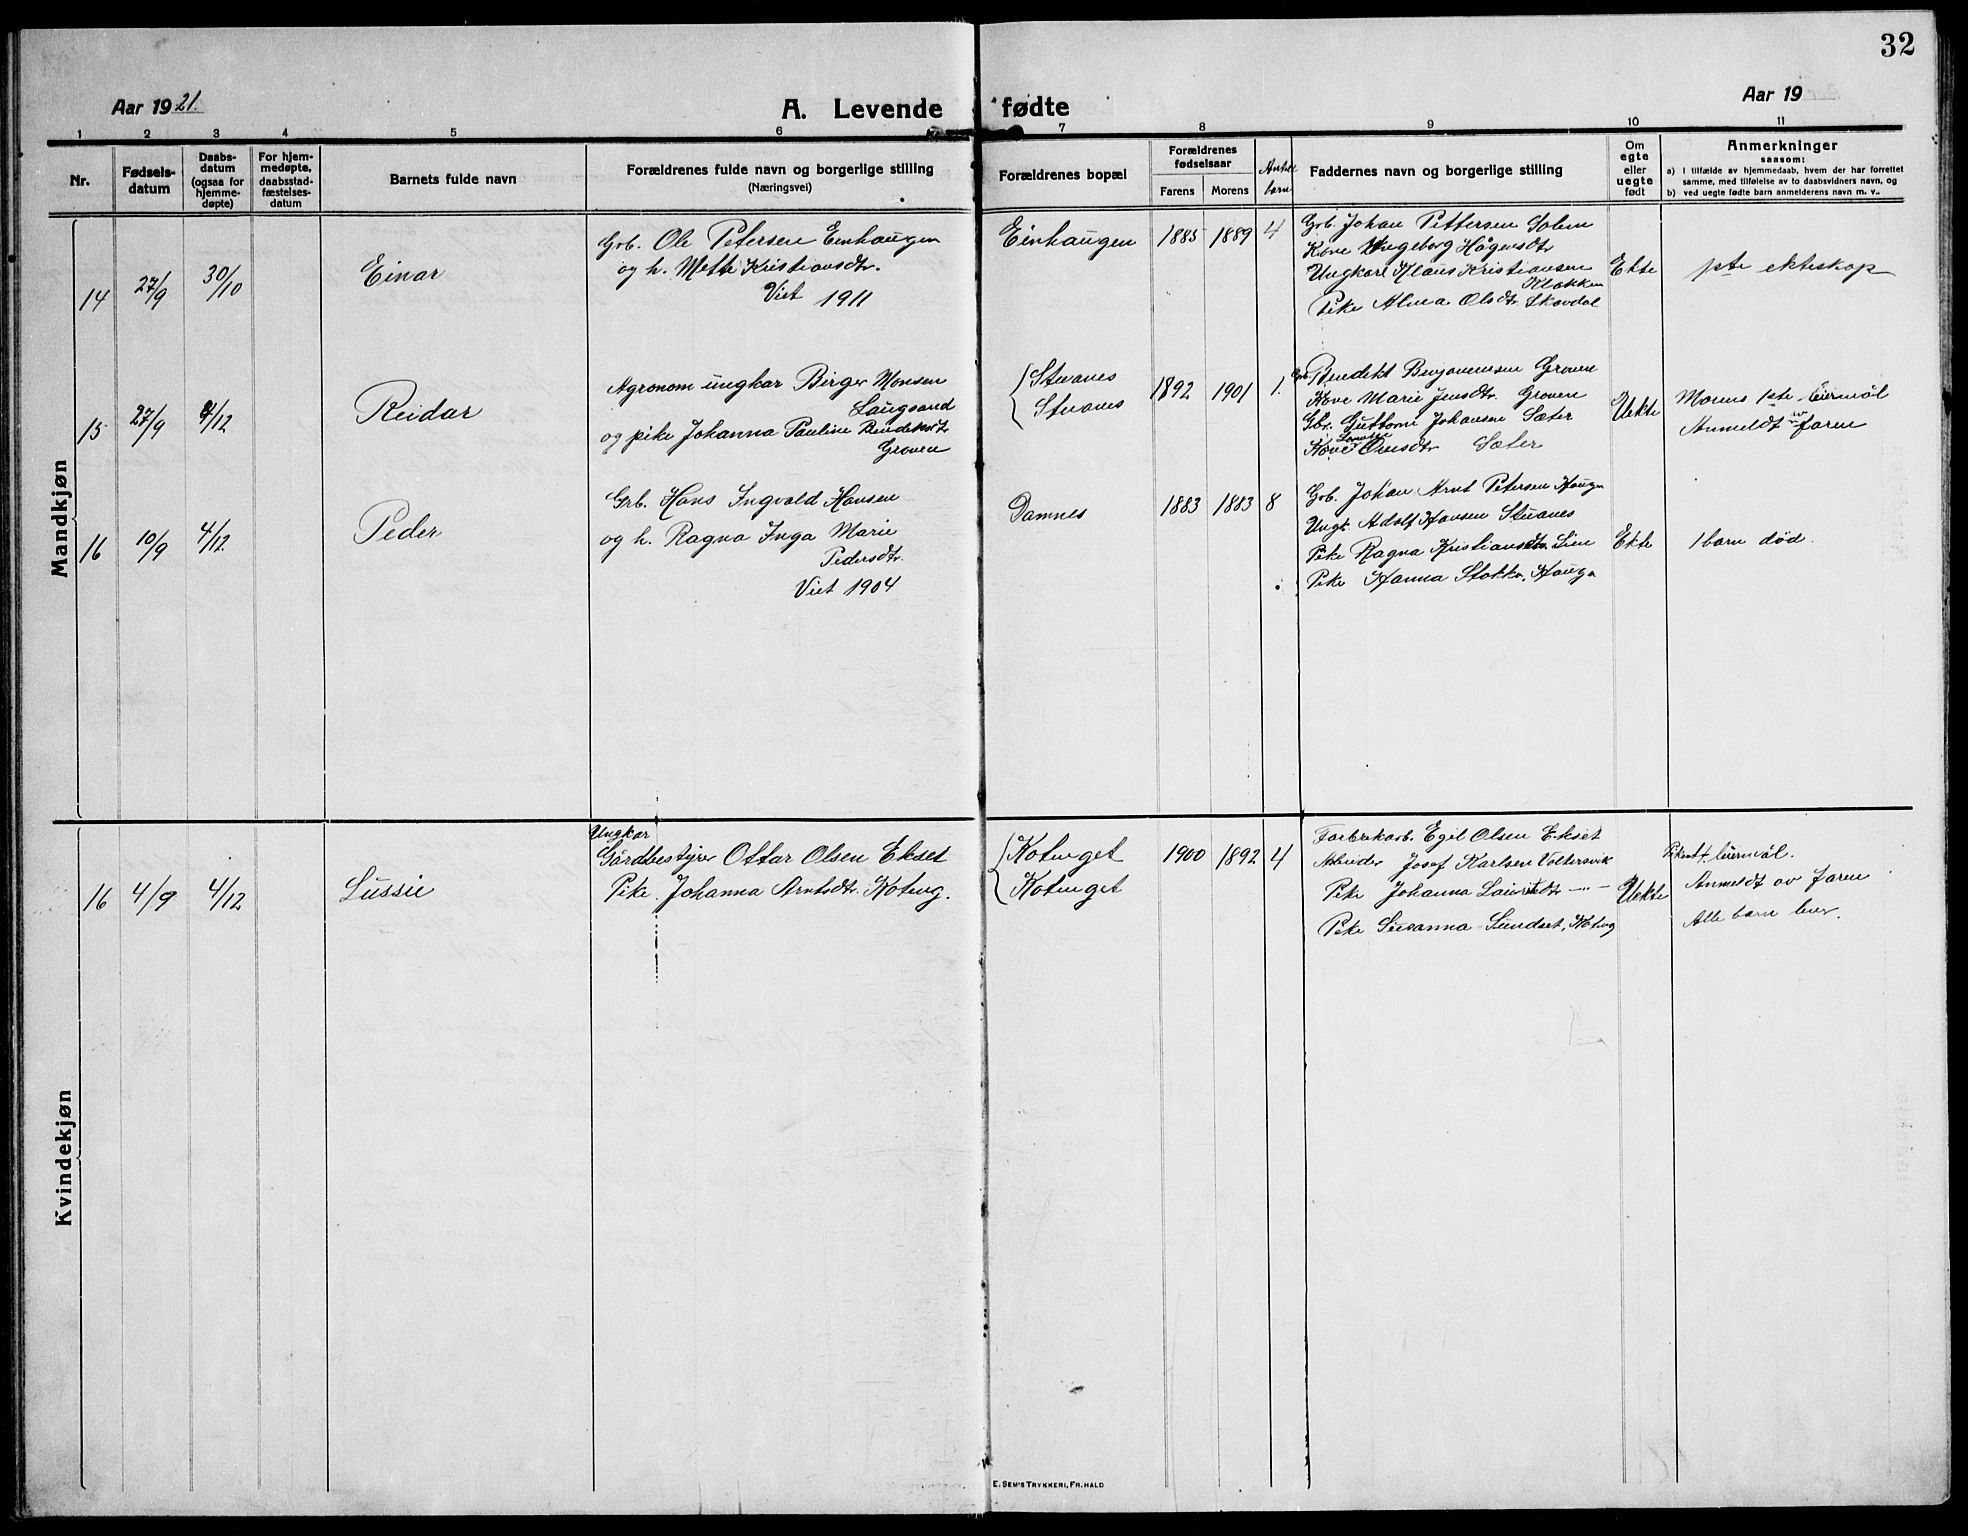 32
Aar 1921.
A. Levende fødte
Aar 19
1 2 3 4 5 6 7 8 9 10 11
Nr.
Fødsels-
datum
Daabs-
datum
(ogsaa for
hjemme-
døpte)
For hjem-
medøpte,
daabsstad-
fæstelses-
datum
Barnets fulde navn
Forældrenes fulde navn og borgerlige stilling
(Næringsvei)
Forældrenes bopæl
Forældrenes
fødselsaar
Farens Morens
Antal
barn
Faddernes navn og borgerlige stilling
Om
egte
eller
uegte
født
Anmerkninger
saasom:
a) I tilfælde av hjemmedaab, hvem der har forrettet
samme, med tilføielse av to daabsvidners navn, og
b) ved uegte fødte barn anmelderens navn m. v..
Mandkjøn
14 27/9 30/10 Einar
Grb. Ole Petersen Einhaugen
og h. Mette Kristiansdtr.
Viet 1911
Einhaugen 1885 1889 4
Grb. Johan Pettersen Solem
Kone Ingeborg Hågensdtr
Ungkarl Klaus Kristiansen
Klokken
Pike Alma Olsdtr. Skavdal
Ekte
1ste ekteskap
15 27/9 4/12 Reidar
Agronom ungkar Birger Monsen
Laugsand
og pike Johanna Pauline Bendeksdtr
Groven
Stuanes
Stuanes
1892 1901 1.
Grb. Bendikt Benjaminsen Groven
Kone Marie Jensdtr. Groven
Gbr. Guttorm Johansen Sæter
Kone Olesdtr Sæter
Uekte
Morens 1ste leiermål
Anmeldt av faren
16 10/9 4/12. Peder
Grb. Hans Ingvald Hansen
og h. Ragna Inga Marie
Pedersdtr.
Viet 1904
Damnes 1883 1883 8
Grb. Johan Arnt Petersen Haugen
Ungk. Adolf Hansen Stuanes
Pike Ragna Kristiansdtr. Lien
Pike Hanna Stokke, Haugen
Ekte
1 barn død.
Kvindekjøn
16 4/9 4/12 Lussie
Ungkar
Gårdbestyrer Ottar Olsen Ekset
Pike Johanna Arntsdtr. Koteng.
Kotenget
Kotenget
1900 1892 4
Fabrikarb. Egil Olsen Ekset
Arbeider Josef Karlsen Voltersvik
Pike Johanna Lauritsdtr — " —
Pike Susanna Sundset, Koteng
Uekte
leiermål.
Anmeldt av faren
Alle barn lever.
E. SEM'S TRYKKERI, FR.HALD